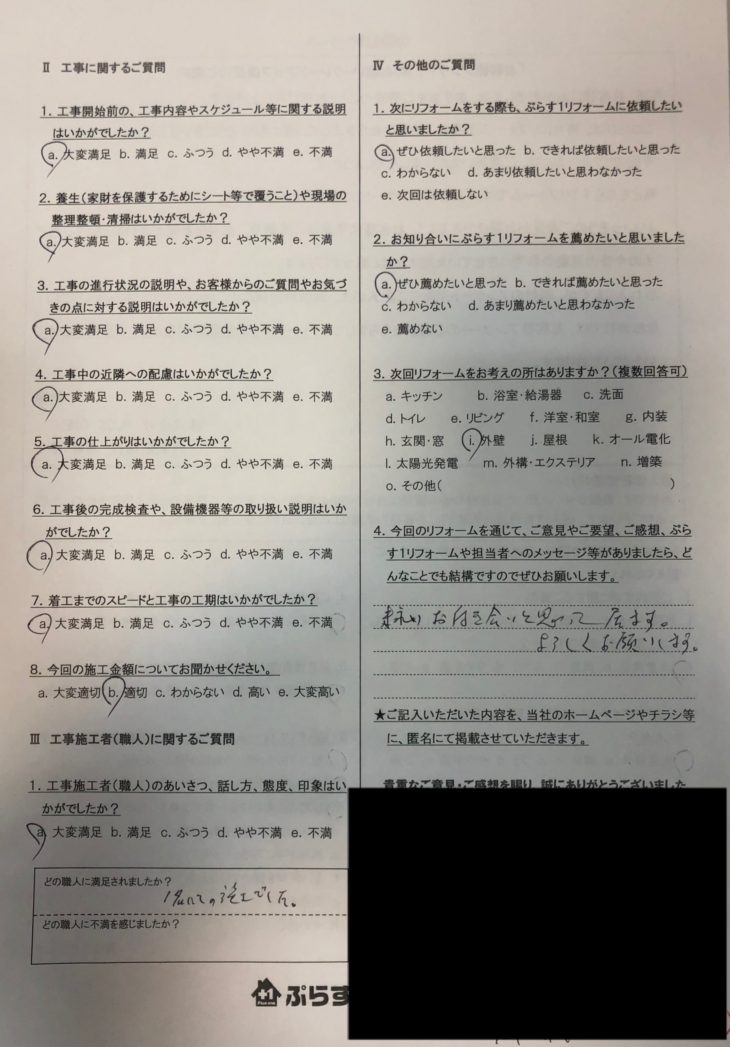 Ⅱ 工事に関するご質問
1. 工事開始前の、工事内容やスケジュール等に関する説明
はいかがでしたか？
a. 大変満足 b. 満足 c. ふつう d. やや不満 e. 不満
2. 養生（家財を保護するためにシート等で覆うこと）や現場の
整理整頓・清掃はいかがでしたか？
a. 大変満足 b. 満足 c. ふつう d. やや不満 e. 不満
3. 工事の進行状況の説明や、お客様からのご質問やお気づ
きの点に対する説明はいかがでしたか？
a. 大変満足 b. 満足 c. ふつう d. やや不満 e. 不満
4. 工事中の近隣への配慮はいかがでしたか？
a. 大変満足 b. 満足 c. ふつう d. やや不満 e. 不満
5. 工事の仕上がりはいかがでしたか？
a. 大変満足 b. 満足 c. ふつう d. やや不満 e. 不満
6. 工事後の完成検査や、設備機器等の取り扱い説明はいか
がでしたか？
a. 大変満足 b. 満足 c. ふつう d. やや不満 e. 不満
7. 着工までのスピードと工事の工期はいかがでしたか？
a. 大変満足 b. 満足 c. ふつう d. やや不満 e. 不満
8. 今回の施工金額についてお聞かせください。
a. 大変適切 b. 適切 c. わからない d. 高い e. 大変高い
Ⅲ 工事施工者（職人）に関するご質問
1. 工事施工者（職人）のあいさつ、話し方、態度、印象はい
かがでしたか？
a. 大変満足 b. 満足 c. ふつう d. やや不満 e. 不満
どの職人に満足されましたか？
1名にての施工でした。
どの職人に不満を感じましたか？
+1 ぷらす
Ⅳ その他のご質問
1. 次にリフォームをする際も、ぷらす1リフォームに依頼したい
と思いましたか？
a. ぜひ依頼したいと思った b. できれば依頼したいと思った
c. わからない d. あまり依頼したいと思わなかった
e. 次回は依頼しない
2. お知り合いにぷらす1リフォームを薦めたいと思いました
か？
a. ぜひ薦めたいと思った b. できれば薦めたいと思った
c. わからない d. あまり薦めたいと思わなかった
e. 薦めない
3. 次回リフォームをお考えの所はありますか？（複数回答可）
a. キッチン b. 浴室・給湯器 c. 洗面
d. トイレ e. リビング f. 洋室・和室 g. 内装
h. 玄関・窓 i. 外壁 j. 屋根 k. オール電化
l. 太陽光発電 m. 外構・エクステリア n. 増築
o. その他（ ）
4. 今回のリフォームを通じて、ご意見やご要望、ご感想、ぷら
す1リフォームや担当者へのメッセージ等がありましたら、ど
んなことでも結構ですのでぜひお願いします。
お付き合いと思って居ます。
よろしくお願いします。
★ご記入いただいた内容を、当社のホームページやチラシ等
に、匿名にて掲載させていただきます。
貴重なご意見・ご感想を賜り、誠にありがとうございました